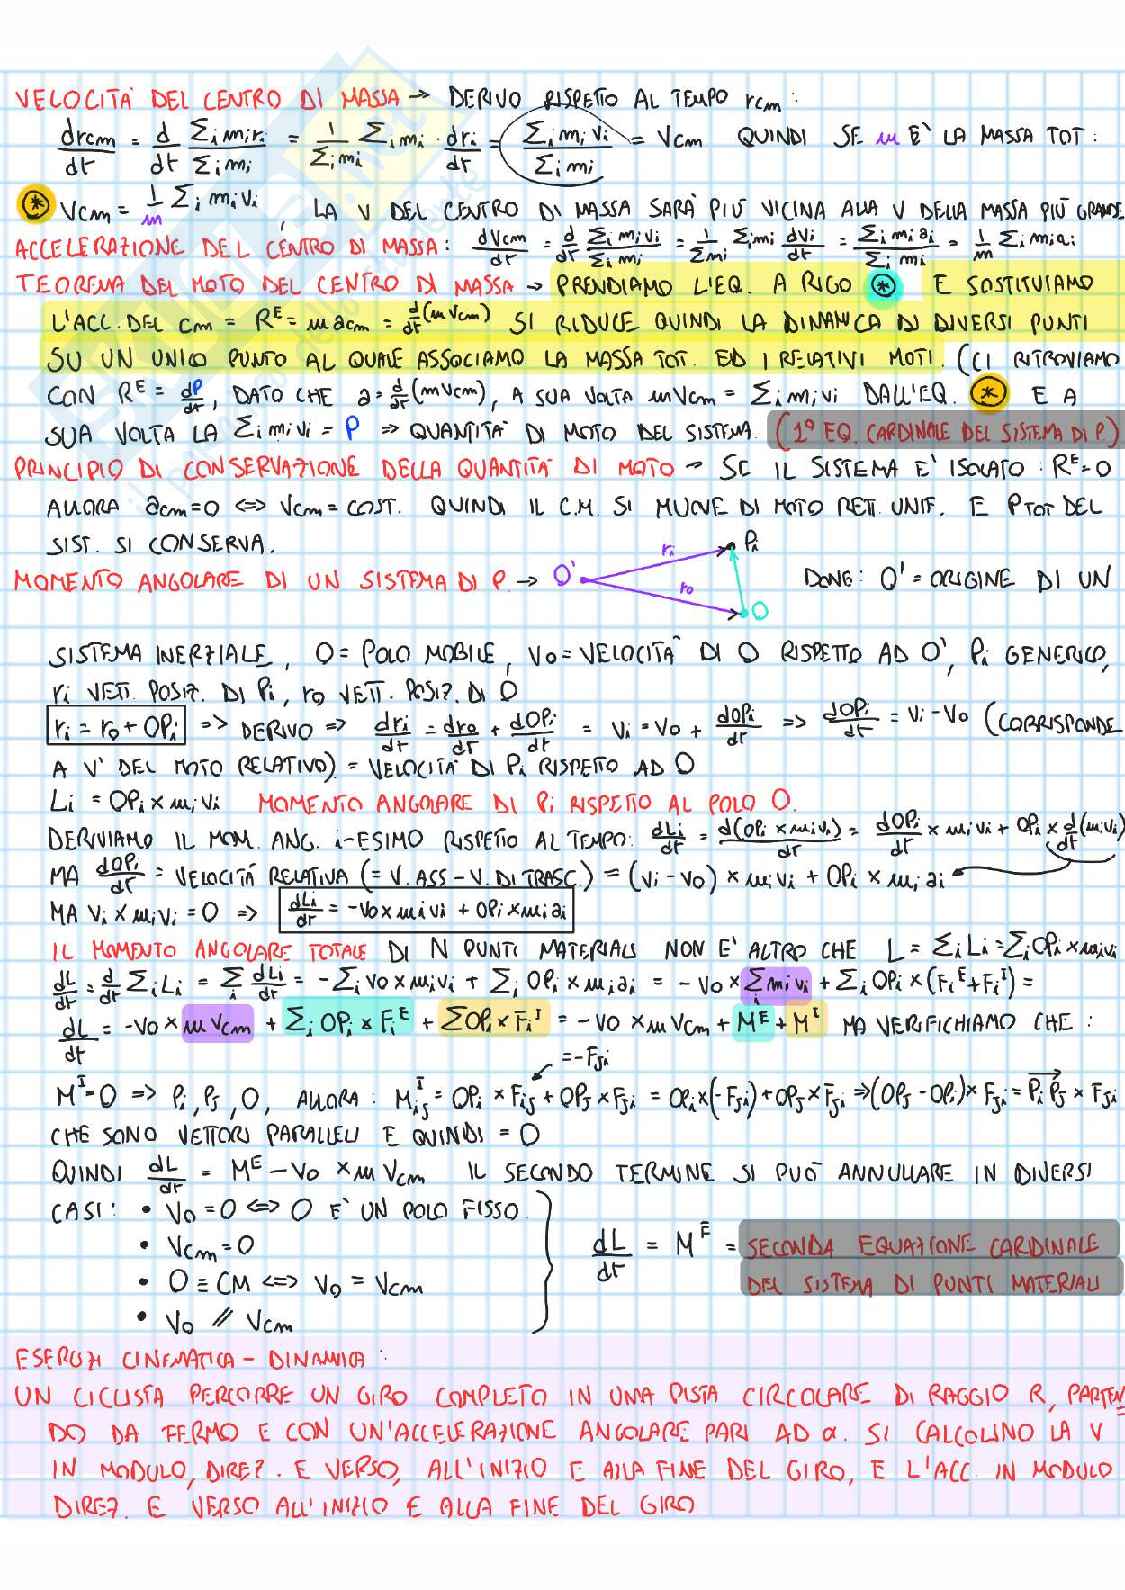 VELOCITÀ DEL CENTRO DI MASSA → DERIVO RISPETTO AL TEMPO rcm :
drcm/dt = d/dt Σi miri/Σi mi = 1/Σi mi Σi mi · dri/dt = Σi mi vi/Σi mi = Vcm QUINDI SE m È LA MASSA TOT :
* Vcm = 1/m Σi mivi , LA V DEL CENTRO DI MASSA SARÀ PIÙ VICINA ALLA V DELLA MASSA PIÙ GRANDE
ACCELERAZIONE DEL CENTRO DI MASSA : dVcm/dt = d/dt Σi mivi/Σi mi = 1/Σmi Σimi dvi/dt = Σi mi ai/Σi mi = 1/m Σi miai
TEOREMA DEL MOTO DEL CENTRO DI MASSA → PRENDIAMO L'EQ. A RIGO * E SOSTITUIAMO
L'ACC. DEL cm = R^E = m acm = d/dt (m Vcm) SI RIDUCE QUINDI LA DINAMICA DI DIVERSI PUNTI
SU UN UNICO PUNTO AL QUALE ASSOCIAMO LA MASSA TOT. ED I RELATIVI MOTI. (CI RITROVIAMO
CON R^E = dP/dt, DATO CHE a = d/dt (mVcm), A SUA VOLTA mVcm = Σi mi vi DALL'EQ. * E A
SUA VOLTA LA Σi mi vi = P ⇒ QUANTITÀ DI MOTO DEL SISTEMA. (1° EQ. CARDINALE DEL SISTEMA DI P.)
PRINCIPIO DI CONSERVAZIONE DELLA QUANTITÀ DI MOTO → SE IL SISTEMA È ISOLATO : R^E = 0
ALLORA acm = 0 ⇔ Vcm = COST. QUINDI IL C.M. SI MUOVE DI MOTO RETT. UNIF. E PTOT DEL
SIST. SI CONSERVA.
ri Pi
MOMENTO ANGOLARE DI UN SISTEMA DI P. → O' DOVE : O' = ORIGINE DI UN
ro O
SISTEMA INERZIALE, O = POLO MOBILE, Vo = VELOCITÀ DI O RISPETTO AD O', Pi GENERICO,
ri VETT. POSIZ. DI Pi, ro VETT. POSIZ. DI O
ri = ro + OPi ⇒ DERIVO ⇒ dri/dt = dro/dt + dOPi/dt = Vi = Vo + dOPi/dt ⇒ dOPi/dt = Vi - Vo (CORRISPONDE
A V' DEL MOTO RELATIVO) = VELOCITÀ DI Pi RISPETTO AD O
Li = OPi × mivi MOMENTO ANGOLARE DI Pi RISPETTO AL POLO O.
DERIVIAMO IL MOM. ANG. i-ESIMO RISPETTO AL TEMPO: dLi/dt = d(OPi × mivi)/dt = dOPi/dt × mivi + OPi × d/dt (mivi)
MA dOPi/dt = VELOCITÀ RELATIVA (= V. ASS - V. DI TRASC.) = (Vi - Vo) × mivi + OPi × mi ai
MA Vi × miVi = 0 ⇒ dLi/dt = -Vo × mi vi + OPi × mi ai
IL MOMENTO ANGOLARE TOTALE DI N PUNTI MATERIALI NON È ALTRO CHE L = ΣiLi = ΣiOPi × mivi
dL/dt = d/dt ΣiLi = Σi dLi/dt = -Σi Vo × mivi + Σi OPi × mi ai = -Vo × Σi mi vi + Σi OPi × (Fi^E + Fi^I) =
dL/dt = -Vo × m Vcm + Σi OPi × Fi^E + ΣOPi × Fi^I = -Vo × m Vcm + M^E + M^I MA VERIFICHIAMO CHE :
= -Fji
M^I = 0 ⇒ Pi, Pj, O, ALLORA : Mij^I = OPi × Fij + OPj × Fji = OPi × (-Fji) + OPj × Fji ⇒ (OPj - OPi) × Fji = PiPj × Fji
CHE SONO VETTORI PARALLELI E QUINDI = 0
QUINDI dL/dt = M^E - Vo × m Vcm IL SECONDO TERMINE SI PUÒ ANNULLARE IN DIVERSI
CASI : • Vo = 0 ⇔ O È UN POLO FISSO
• Vcm = 0
dL/dt = M^E = SECONDA EQUAZIONE CARDINALE
• O ≡ CM ⇔ Vo = Vcm
DEL SISTEMA DI PUNTI MATERIALI
• Vo // Vcm
ESERCIZI CINEMATICA - DINAMICA :
UN CICLISTA PERCORRE UN GIRO COMPLETO IN UNA PISTA CIRCOLARE DI RAGGIO R, PARTEN
DO DA FERMO E CON UN'ACCELERAZIONE ANGOLARE PARI AD α. SI CALCOLINO LA V
IN MODULO, DIREZ. E VERSO, ALL'INIZIO E ALLA FINE DEL GIRO, E L'ACC. IN MODULO
DIREZ. E VERSO ALL'INIZIO E ALLA FINE DEL GIRO